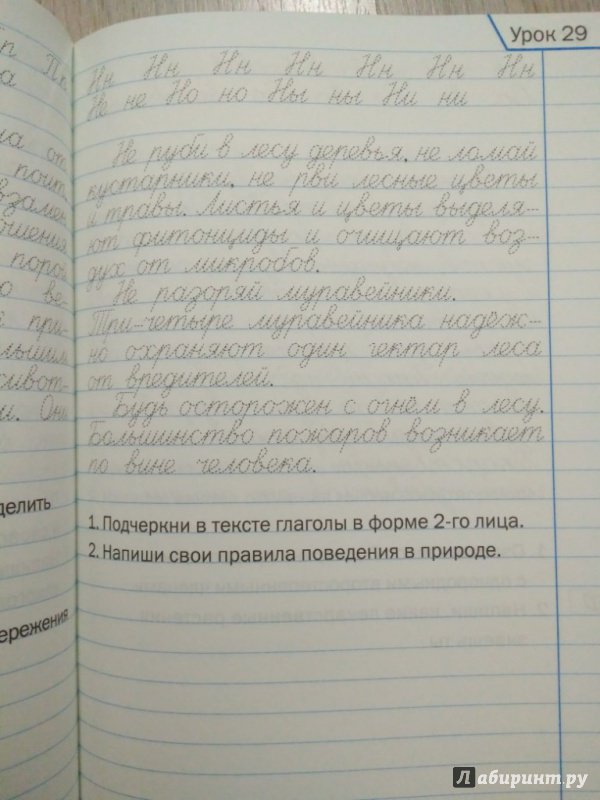 Урок 29
Нн Нн Нн Нн Нн Нн Нн
Не не Но но Ны ны Ни ни
Не руби в лесу деревья, не ломай
кустарники, не рви лесные цветы
и травы. Листья и цветы выделя-
ют фитонциды и очищают воз-
дух от микробов.
Не разоряй муравейники.
Три-четыре муравейника надёж-
но охраняют один гектар леса
от вредителей.
Будь осторожен с огнём в лесу.
Большинство пожаров возникает
по вине человека.
1. Подчеркни в тексте глаголы в форме 2-го лица.
2. Напиши свои правила поведения в природе.
Пп
от
почит
взамен
ошения
порой
ве-
при-
льшим
живот-
и. Они
делить
ережения
Лабиринт.ру